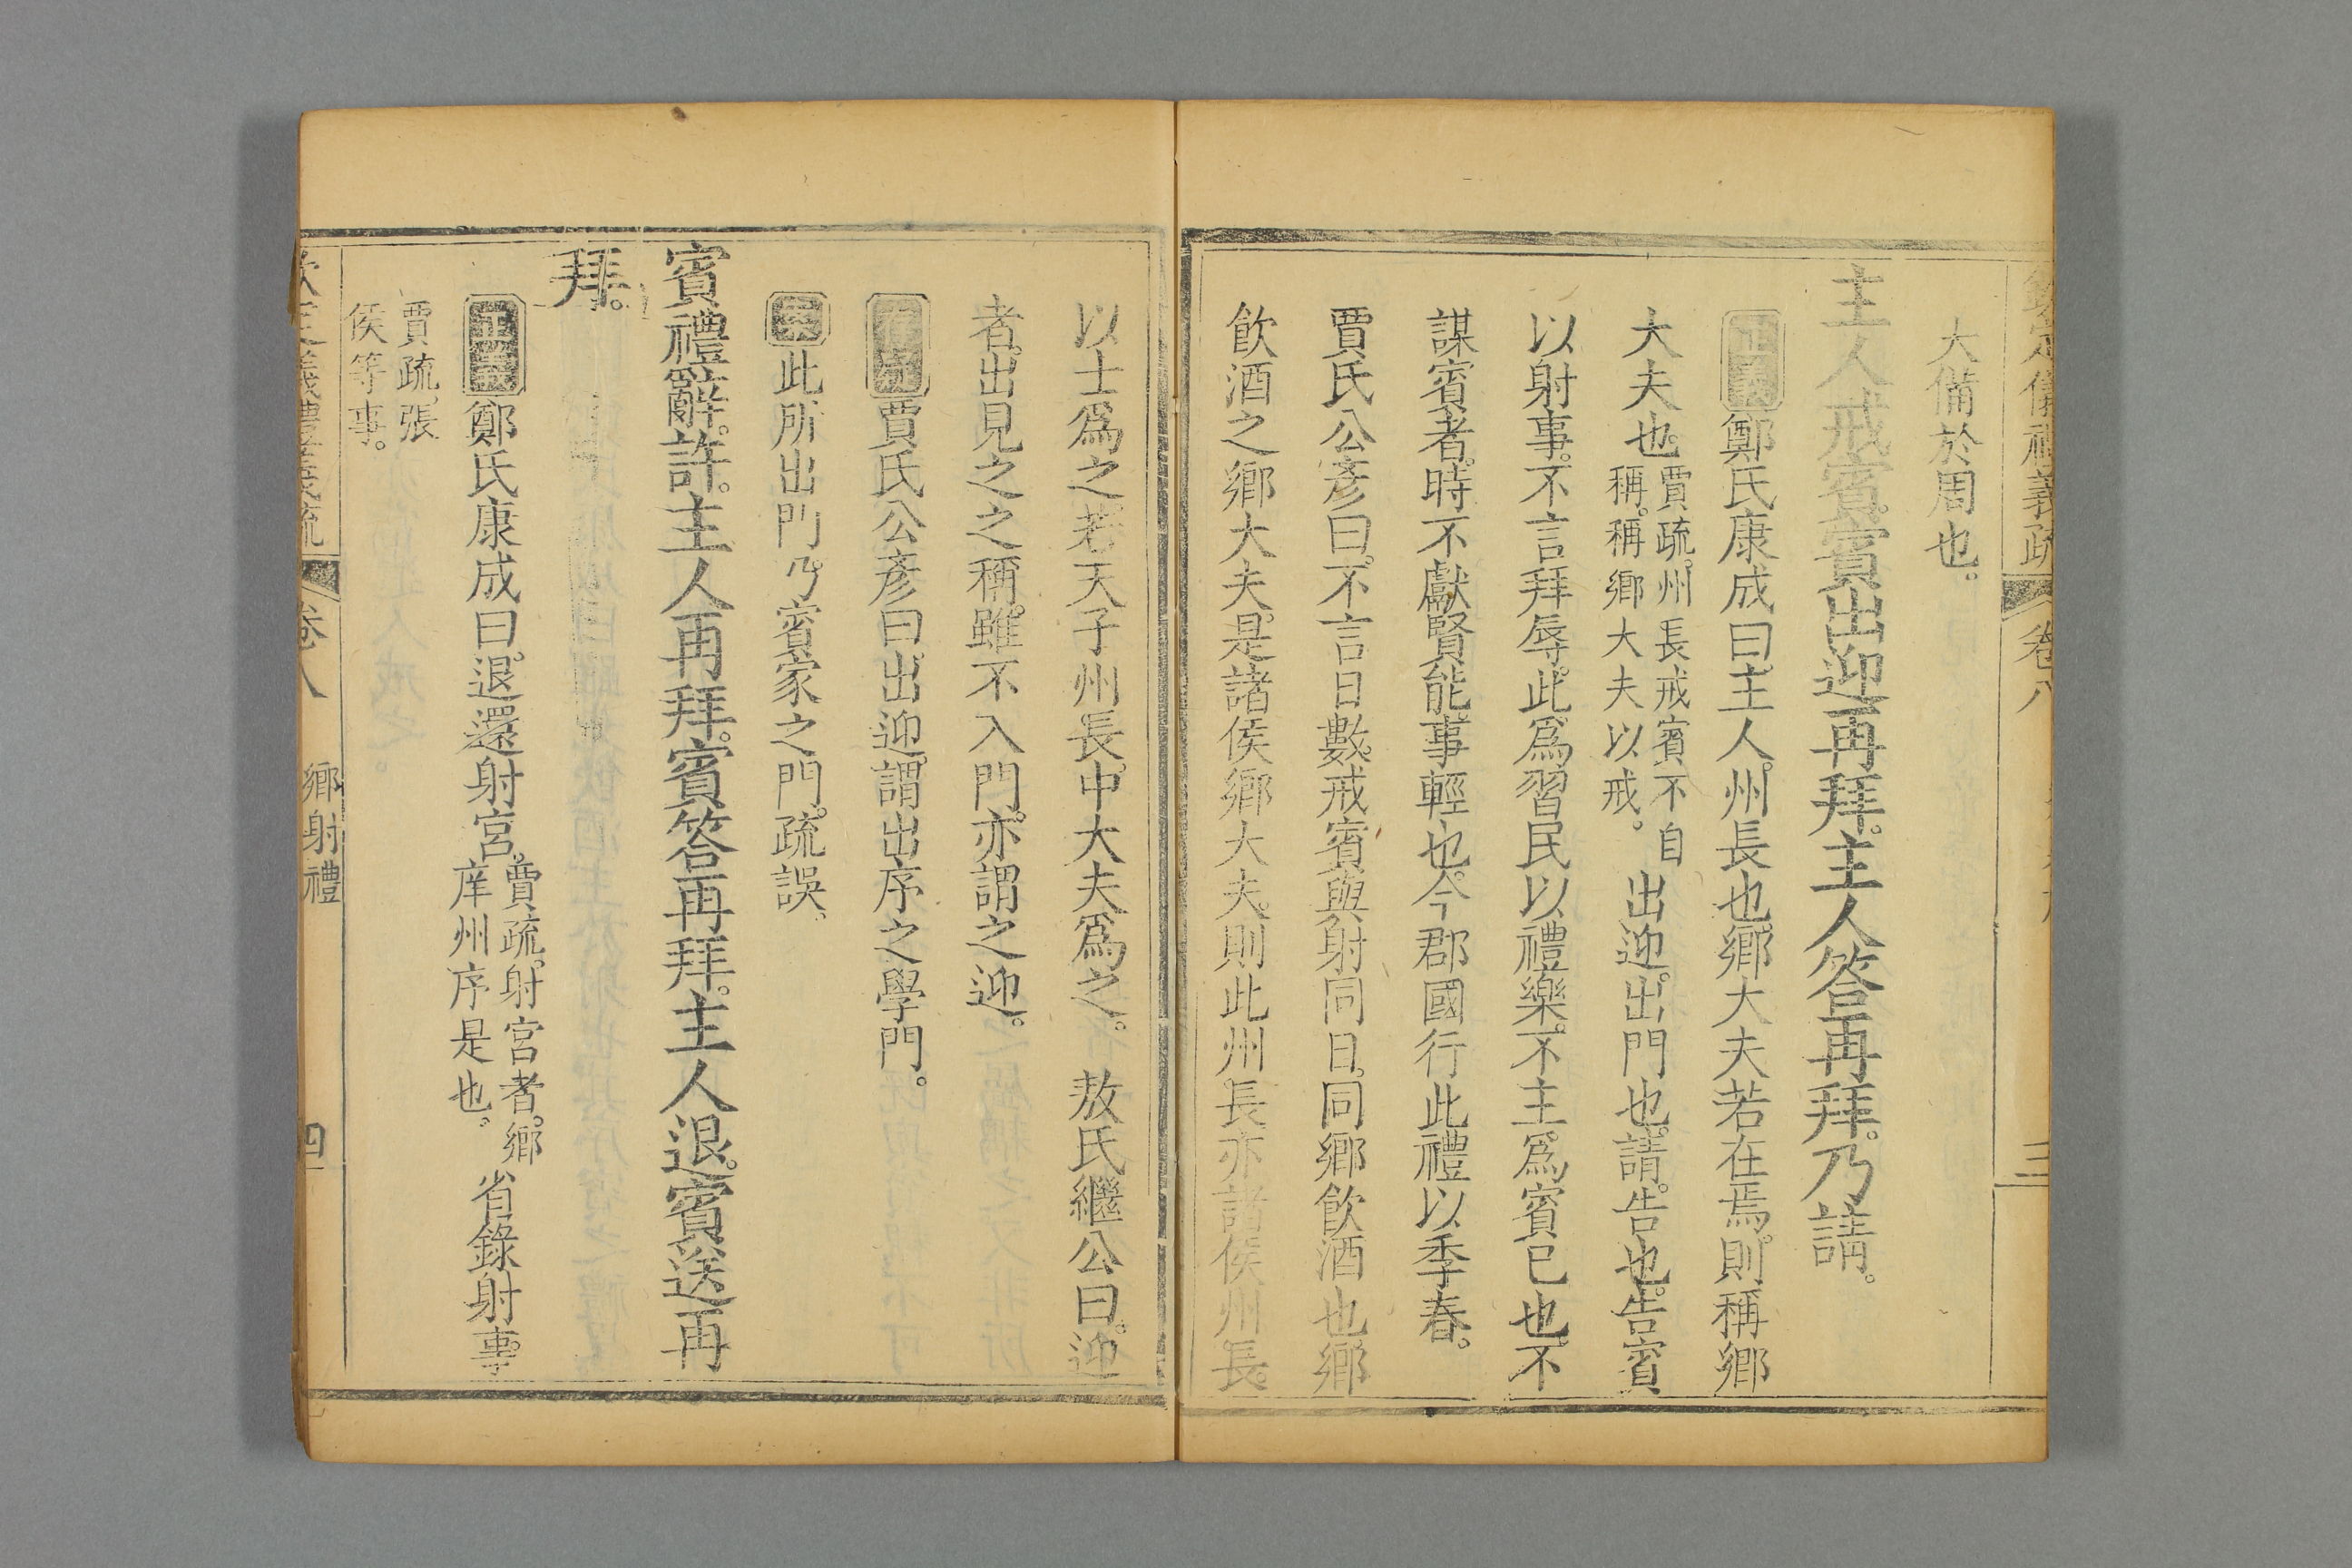 大備於周也。
主人戒賓。賓出迎再拜。主人答再拜。乃請。
正義鄭氏康成曰。主人。州長也。鄉大夫若在焉。則稱鄉
大夫也。賈疏。州長戒賓不自稱。稱鄉大夫以戒。出迎。出門也。請。告也。告賓
以射事。不言拜辱。此爲習民以禮樂。不主爲賓己也。不
謀賓者。時不獻賢能。事輕也。今郡國行此禮以季春。
賈氏公彥曰。不言日數。戒賓與射同日。同鄉飲酒也鄉
飲酒之鄉大夫。是諸侯鄉大夫。則此州長亦諸侯州長。
以士爲之。若天子州長。中大夫爲之。 敖氏繼公曰。迎
者。出見之之稱。雖不入門。亦謂之迎。
存疑賈氏公彥曰。出迎。謂出序之學門。
案此所出門。乃賓家之門。疏誤。
賓禮辭。許。主人再拜。賓答再拜。主人退。賓送。再
拜。
正義鄭氏康成曰。退。還射宮。賈疏。射宮者。鄉庠州序是也。省錄射事。
賈疏。張侯等事。
卷八 鄉射禮 四